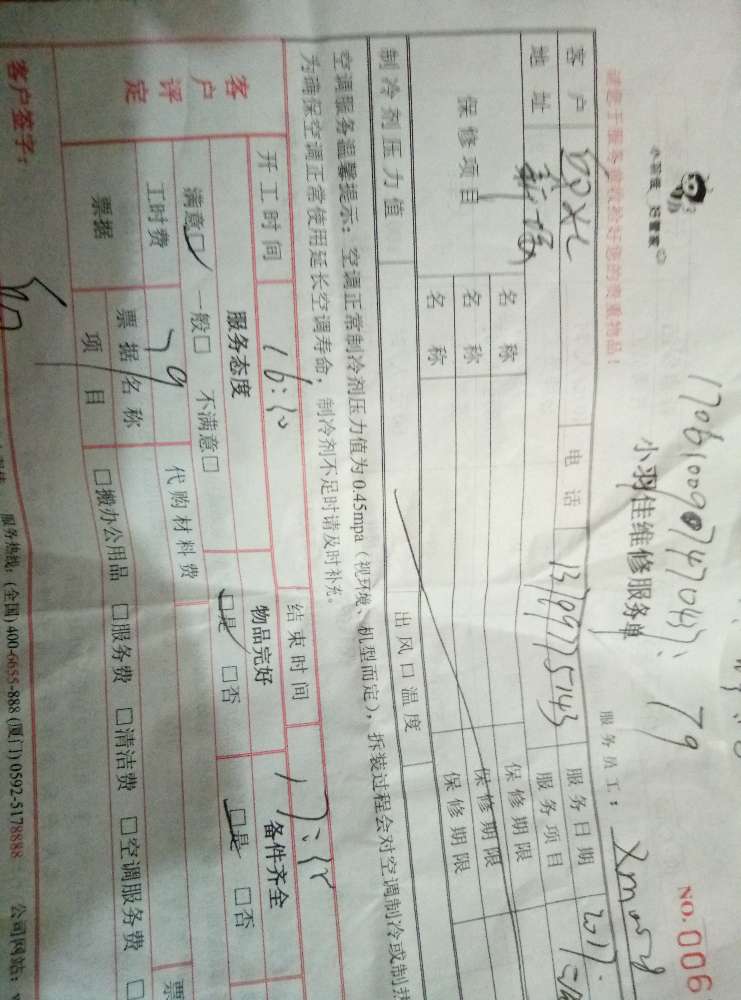 小羽佳 好管家
NO.006
小羽佳维修服务单
79
服务员工：
请您于服务前收拾好您的贵重物品！
客户
电话
服务日期 2017
地址
服务项目
保修项目
名称
保修期限
名称
保修期限
名称
保修期限
制冷剂压力值
出风口温度
空调服务温馨提示：空调正常制冷剂压力值为0.45mpa（视环境、机型而定），拆装过程会对空调制冷或制热
为确保空调正常使用延长空调寿命，制冷剂不足时请及时补充。
开工时间
结束时间
客户评定
服务态度
物品完好
备件齐全
满意□ 一般□ 不满意□
□是 □否
□是 □否
工时费 79
代购材料费
票据
票据名称
项目
□搬办公用品 □服务费 □清洁费 □空调服务费 □
客户签字：
服务热线：(全国)400-6655-888 (厦门)0592-5178888 公司网站：